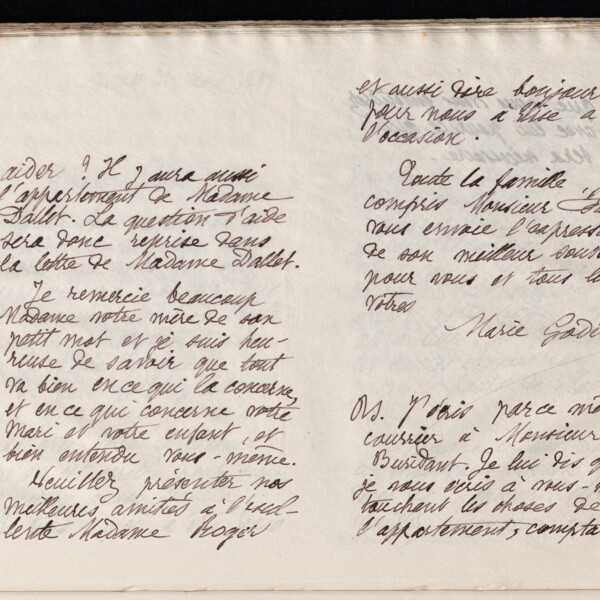 aider ? Il y aura aussi
l'appartement de Madame
Dallet. La question d'aide
sera donc reprise dans
la lettre de Madame Dallet.
Je remercie beaucoup
Madame votre mère de son
petit mot et je suis heu-
reuse de savoir que tout
va bien en ce qui la concerne,
et en ce qui concerne votre
mari et votre enfant, et
bien entendu vous-même.
Veuillez présenter nos
meilleures amitiés à l'excel-
lente Madame Roger
et aussi dire bonjour
pour nous à Elise à
l'occasion.
Toute la famille, y
compris Monsieur
vous envoie l'express
de son meilleur souv
pour vous et tous le
vôtres
Marie God
P.S. J'écris parce mê
courrier à Monsieur
Buridant. Je lui dis q
je vous écris à vous-
touchant les choses de
l'appartement, compta